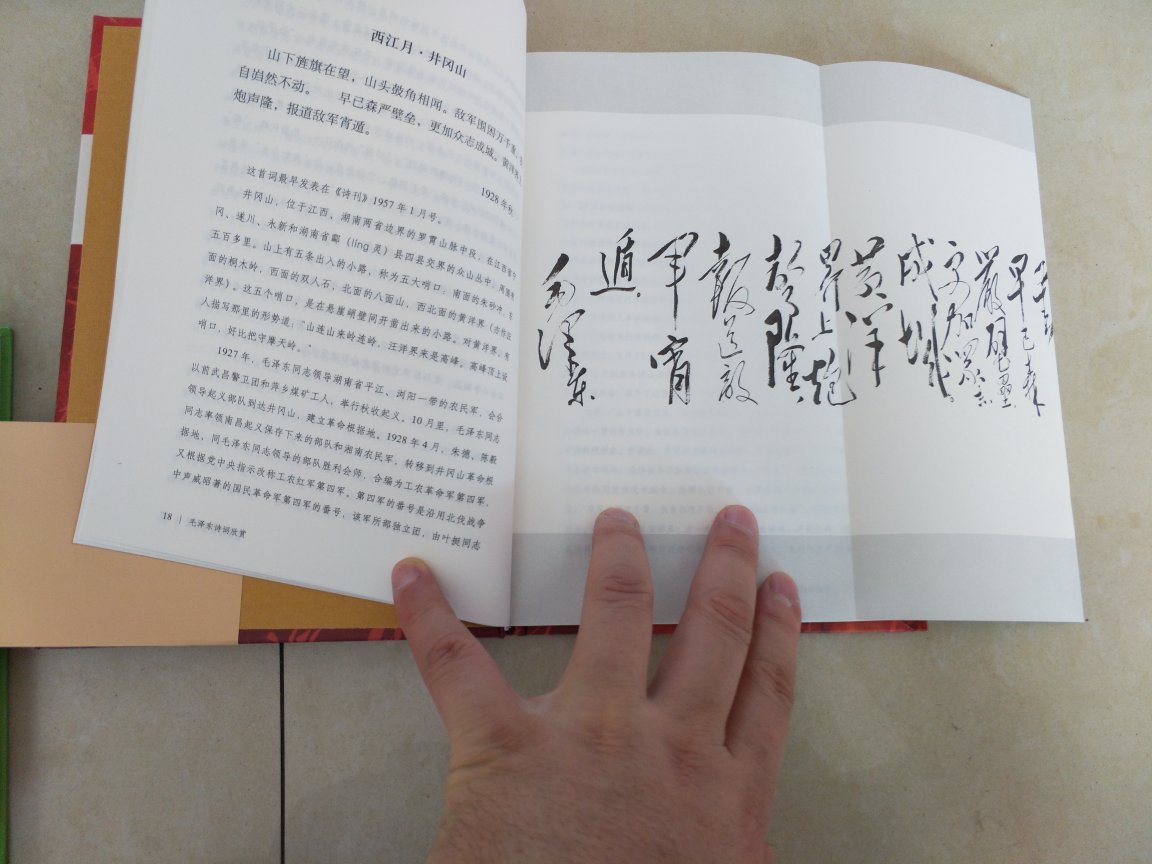 西江月·井冈山
山下旌旗在望，山头鼓角相闻。敌军围困万千重，我
自岿然不动。　早已森严壁垒，更加众志成城。黄洋界上
炮声隆，报道敌军宵遁。
1928年秋
这首词最早发表在《诗刊》1957年1月号。
井冈山，位于江西、湖南两省边界的罗霄山脉中段，在江西省宁
冈、遂川、永新和湖南省酃（líng灵）县四县交界的众山丛中，周围有
五百多里。山上有五条出入的小路，称为五大哨口：南面的朱砂冲，东
面的桐木岭，西面的双人石，北面的八面山，西北面的黄洋界（亦称汪
洋界）。这五个哨口，是在悬崖峭壁间开凿出来的小路。对黄洋界，有
人描写那里的形势道：“山连山来岭连岭，汪洋界来是高峰。高峰顶上设
哨口，好比把守摩天岭。”
1927年，毛泽东同志领导湖南省平江、浏阳一带的农民军，会合
以前武昌警卫团和萍乡煤矿工人，举行秋收起义。10月里，毛泽东同志
领导起义部队到达井冈山，建立革命根据地。1928年4月，朱德、陈毅
同志率领南昌起义保存下来的部队和湘南农民军，转移到井冈山革命根
据地，同毛泽东同志领导的部队胜利会师，合编为工农革命军第四军，
又根据党中央指示改称工农红军第四军。第四军的番号是沿用北伐战争
中声威昭著的国民革命军第四军的番号，该军所部独立团，由叶挺同志
18 | 毛泽东诗词欣赏
早已森
严壁垒
更加众志
成城
黄洋
界上炮
声隆
报道敌
军宵
遁
毛泽东